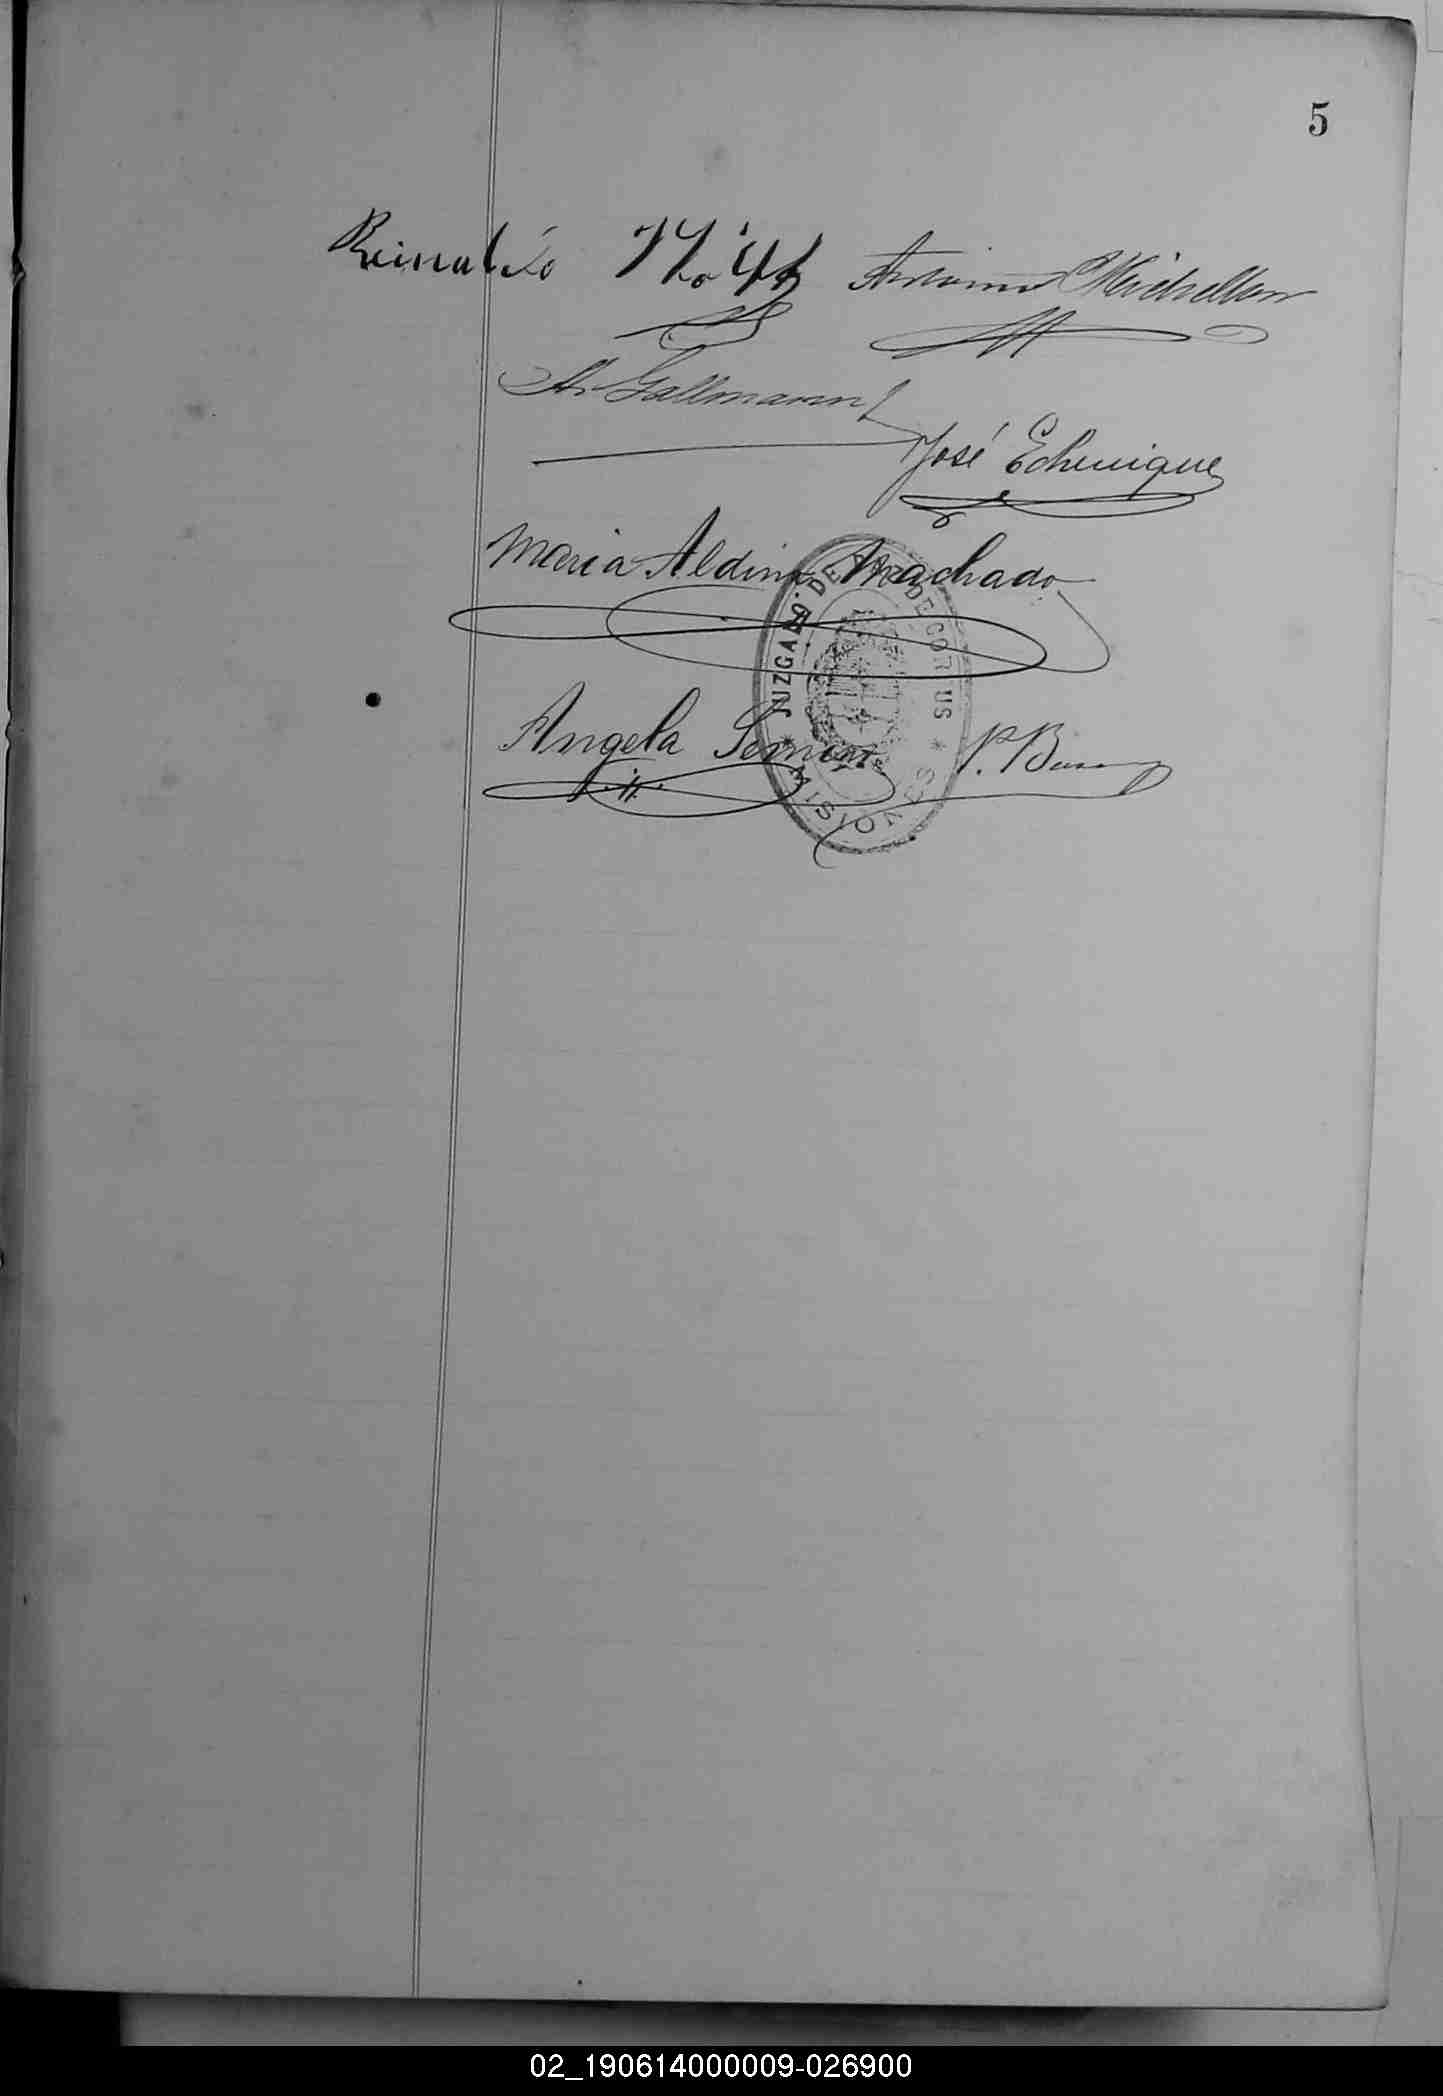 5
Reinaldo
Antonio Michellon
A. Gallmann
José Echenique
Maria Aldina Machado
JUZGADO DE PAZ DE CORPUS
* MISIONES *
Angela
P.
02_190614000009-026900